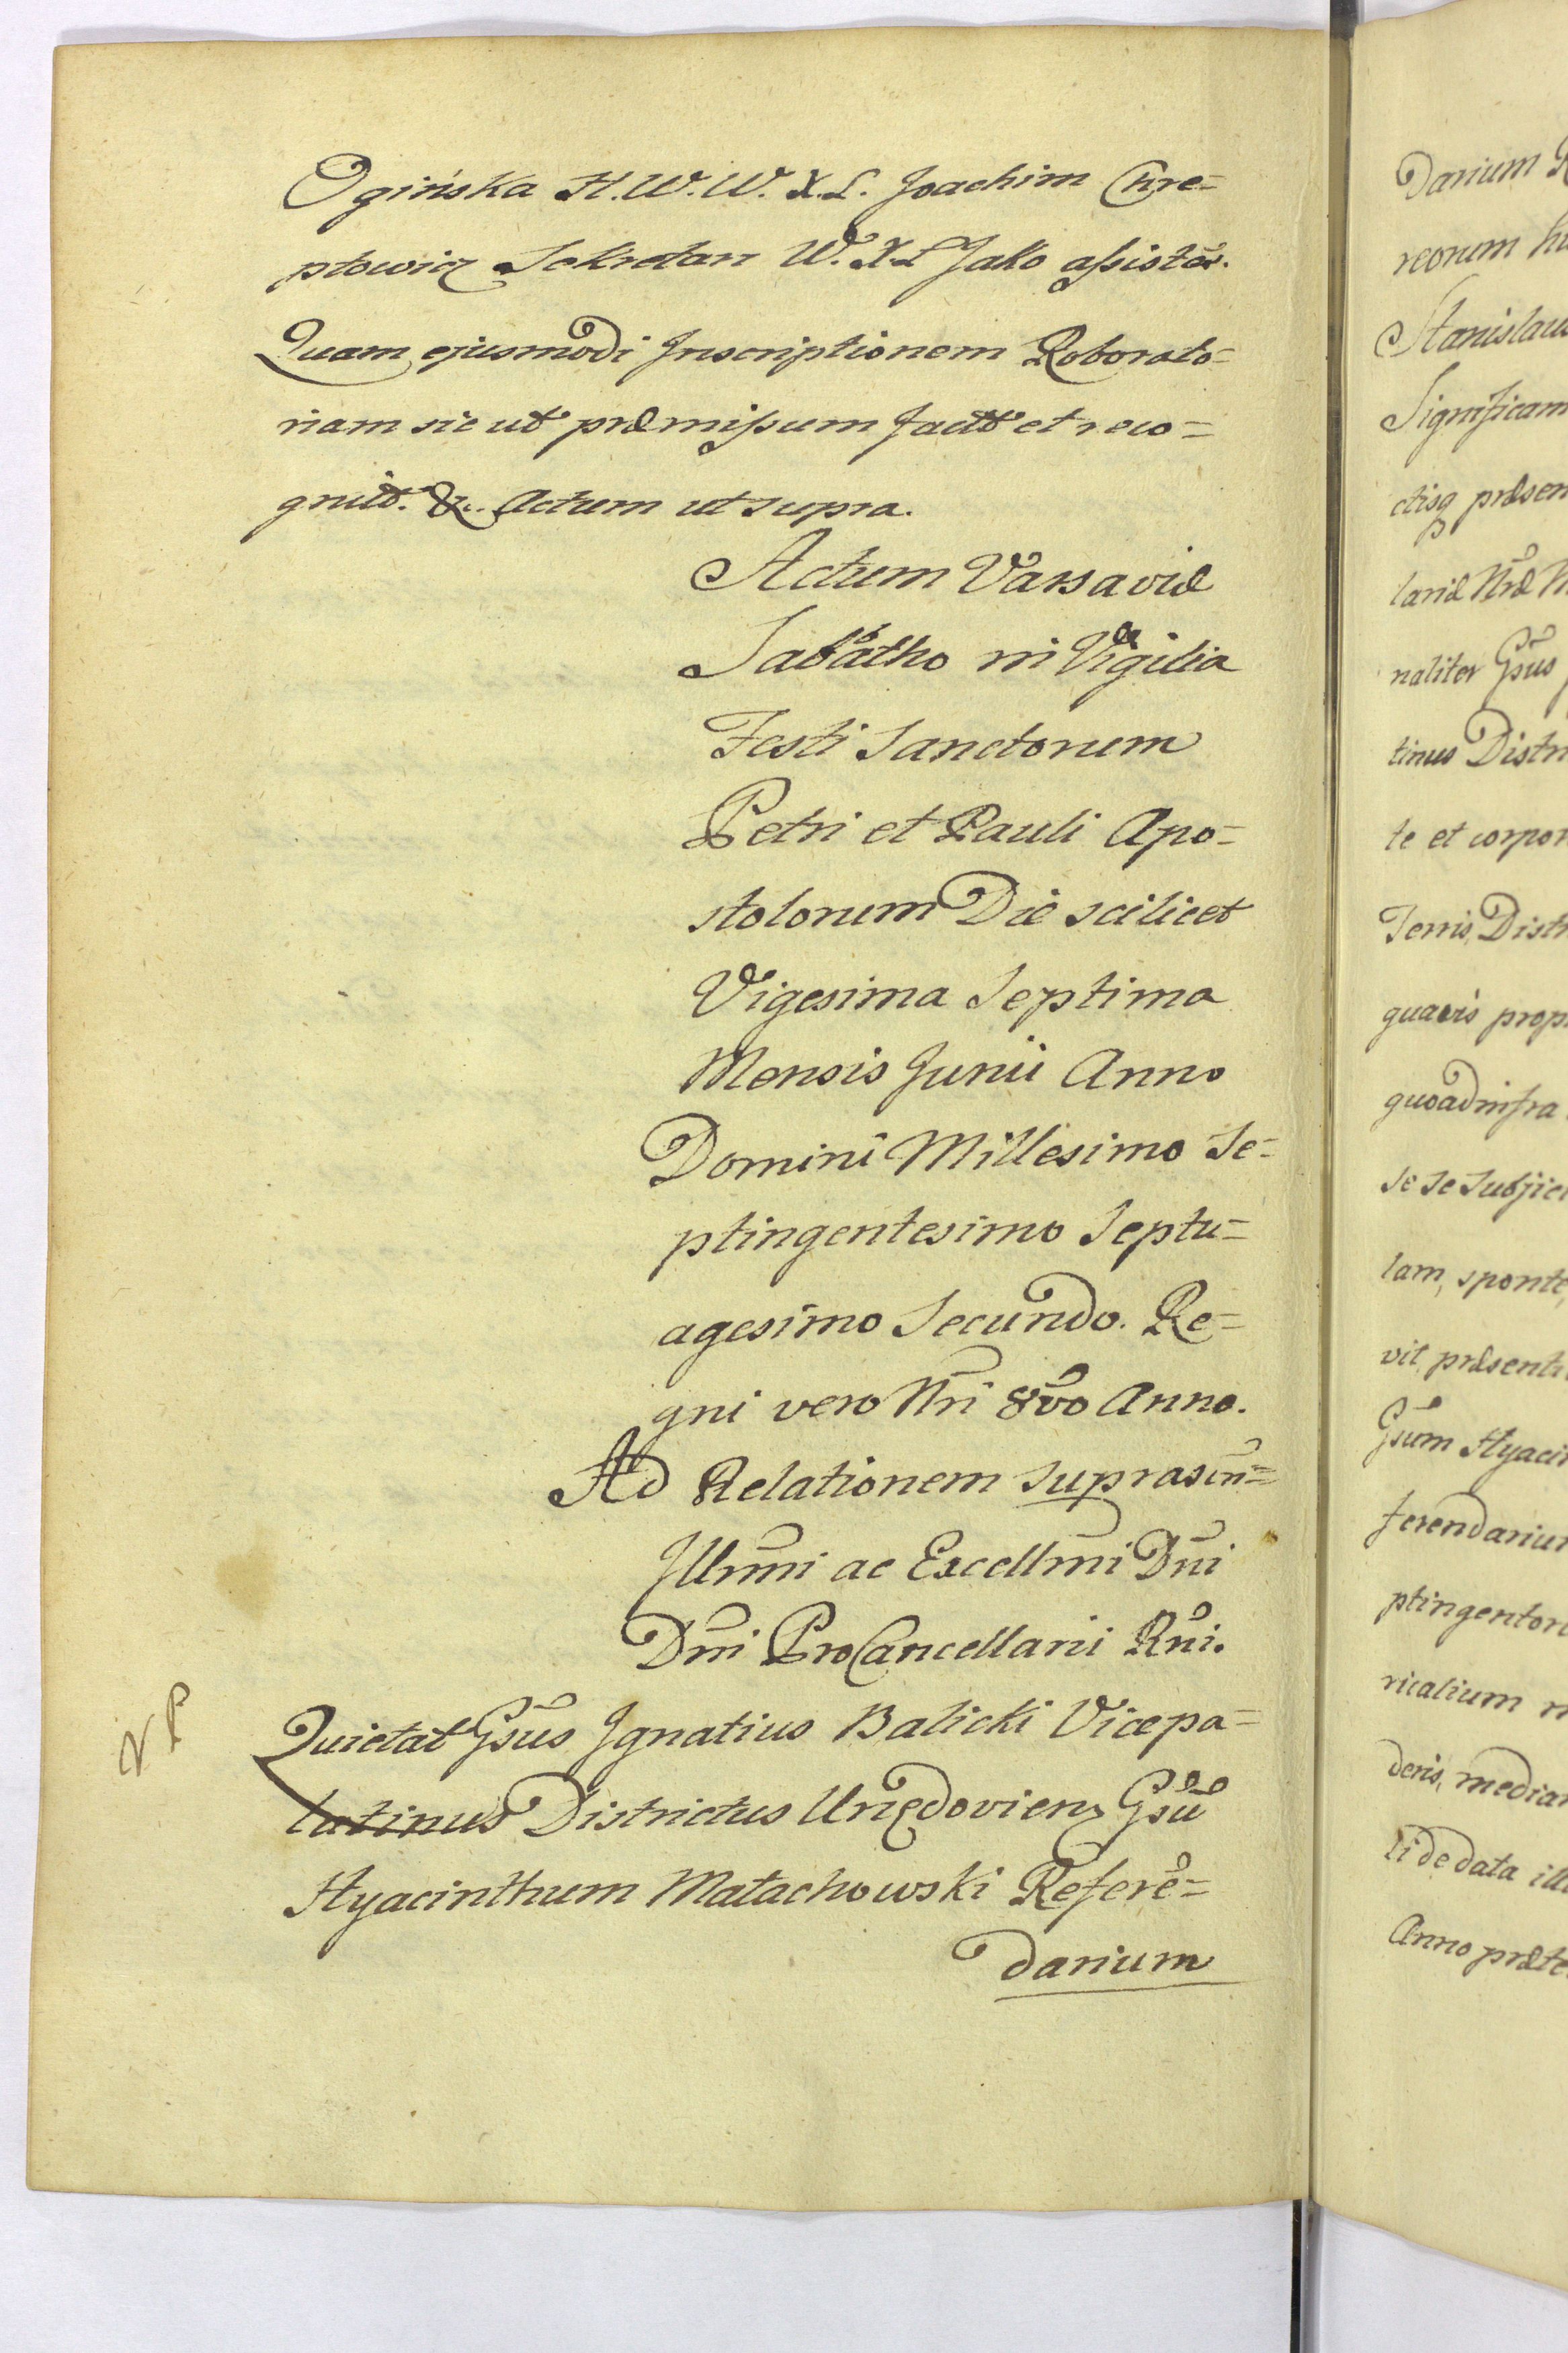 Ogińska H. W. W. X. L. Joachim Chre=
ptowicz Sekretarz W. X. L Jako assistēs.
Quam ejusmodi Inscriptionem Roborato=
riam sic ut præmissum facit et reco=
gnuit. &c. Actum ut supra.
Actum Varsaviæ
Sabatho in Vigilia
Festi Sanctorum
Petri et Pauli Apo=
stolorum Die scilicet
Vigesima Septima
Mensis Junii Anno
Domini Millesimo Se=
ptingentesimo Septu=
agesimo Secundo. Re=
gni vero Nr̃i 8võ Anno.
Ad Relationem suprascr̃=
Illrm̃i ac Excellm̃i Dñi
Dñi ProCancellarii Rñi.
N P
Quietat Gsũs Ignatius Balicki Vicepa=
latinus Districtus Urzędoviens Gsũ
Hyacinthum Małachowski Referẽ=
darium
Darium R
reorum hu
Stanislau
Significam
ctisq præsen
lariæ Nr̃æ M
naliter Gsũs
tinus Distri
te et corpor
Terris, Distr
quavis prop
quoad infra
se se subjici
lam, sponte,
vit præsenti
Gsũm Hyacin
ferendarium
ptingentoru
ricalium m
deris, median
li de data ill
Anno præte